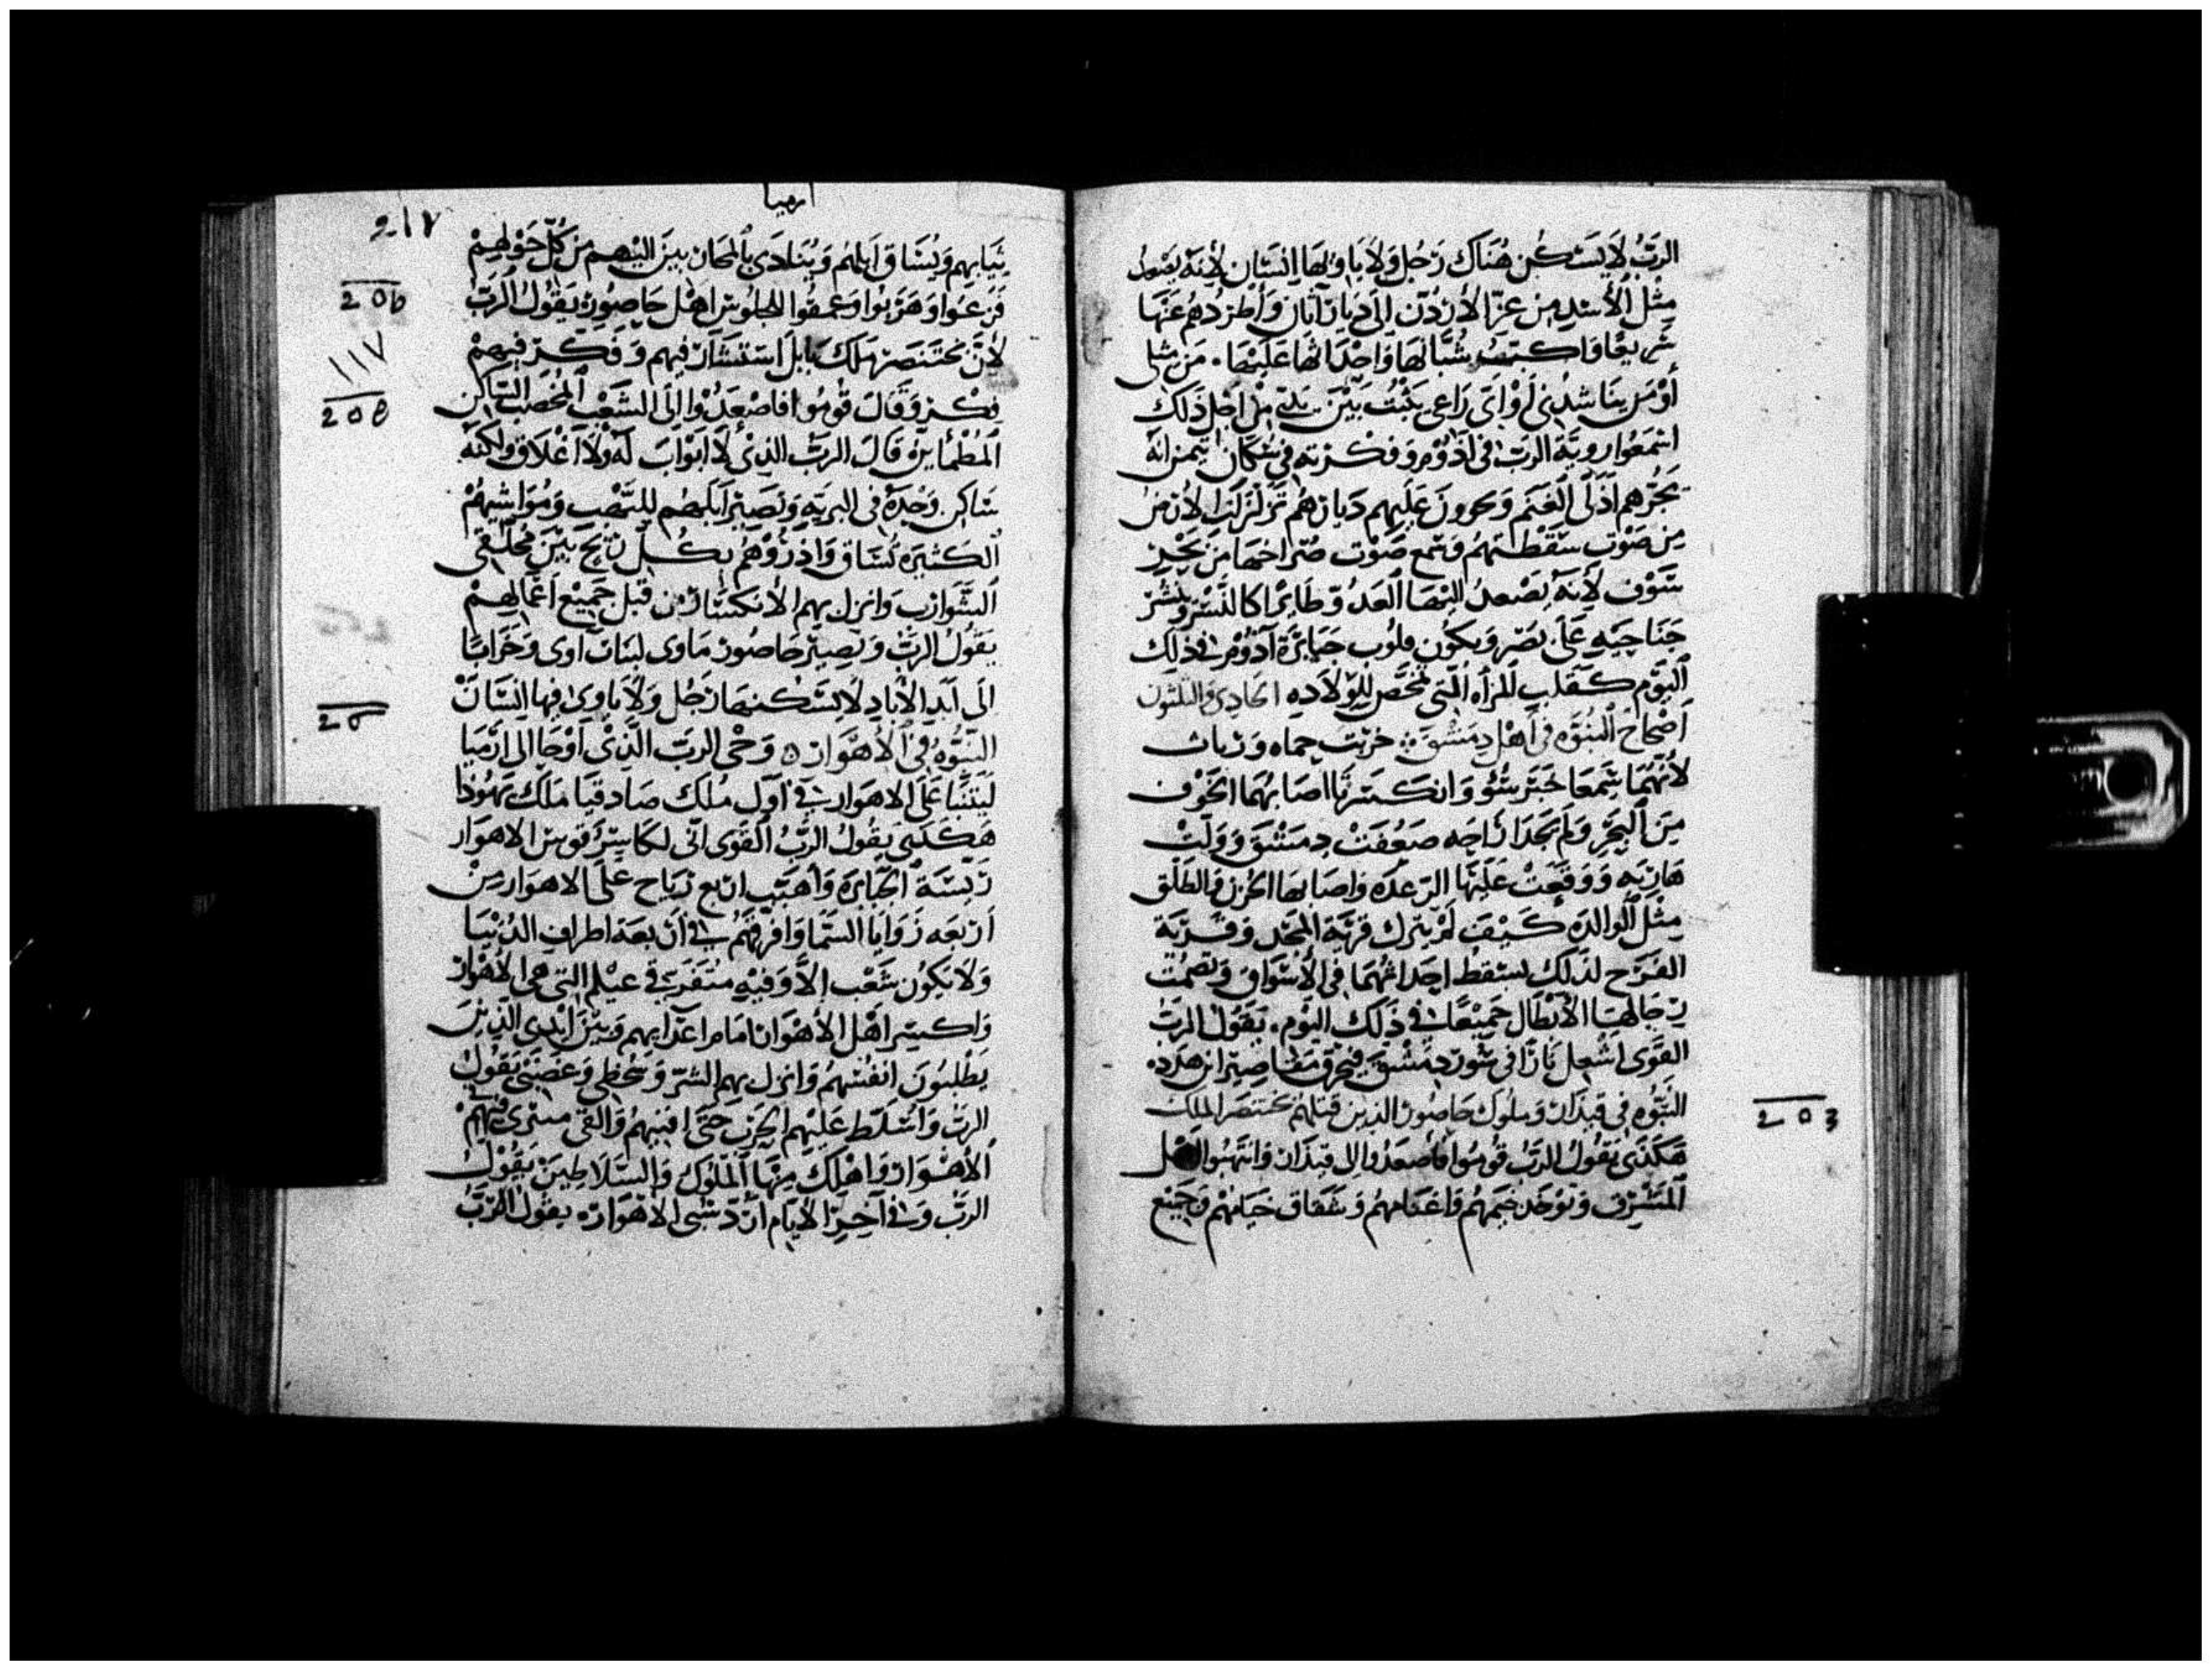 الرَبُ لاَ يَسْكُن هُنَاك رَجُل وَلاَ ياوِيهَا اِنسَان لأِنَهُ يَصْعَدُ
مِثْل الأَسَد مِن عِزّ الأُرْدُن الى دِيارَ اَثان وَأَطْرُدُهُم عَنْهَا
سَريعًا وَاكتب شُبّانَهَا وَاحْدَاثهَا عَلَيْهَا . مَن مِثلى
أَوْ مَن يَنَاشِدُنِى أَوْ اَىّ رَاعِى يَثْبُت بَيْن يَدَىّ مِن اَجْل ذَلِكَ
اسْمَعُوا رويّة الربّ فى اَدُوْم وَفِكْرته فى سُكان تيمن انّهُ
يَجُرُّهم اَذَلّى الْغَنَم وَيحرون عَلَيْهِم دَيارَهُم تَزَلزَلَت الأَرْضُ
مِن صَوْت سَقْطَتهُمْ وَسْمع صَوْت صُرَاخهَا مِن بَحْر
سَوْف لأَنَهُ يَصْعدُ اليْهَا العَدُوّ طَائِرًا كالنَّسْر وَيَنشُرْ
جَنَاحَيْهِ عَلَى بَصْر وَيَكُون قلُوب جَبَابِرَة آدُوْم فى ذلِك
اَليَوْم كَقَلب المَرأه الّتى تمخّض لِلوِلادِه الحادِى وَالثَلثون
اَصْحَاح النُبوّه فى اَهْل دِمَشْق خزيَت حماه وَرفات
لأنّهُمَا سَمعَا خَبَر سُوْء وَانكسَرتَا اصَابهُمَا الخَوْف
مِنَ البَحْر وَلَم يَجِدَا رَاحه ضَعُفَتْ دِمَشْقَ وَوَلّتْ
هَاربَه وَوَقَعَتْ عَلَيْهَا الرّعدَه وَاصَابهَا الحُزن وَالطَلْق
مِثْل الوالدَه كَيْفَ لَمْ يترك قريَة المجْد وَقَريَة
الفَرَح لذلك يسْقُط احدَاثُهُمَا فى الأَسْوَاق وَتَصْمُت
رِجَالهَا الأَبْطَال جَميْعًا فى ذَلِك اليَوْم . يَقُولُ الرَبُّ
القَوّى اُشْعِل نَارًا فى سُور دِمَشْقَ فيحْرق مَقَاصِير ابن هَدَد ه
النُبوّه فى قيذَار وَملُوك حَاصُور الذِين قَتَلَهُم بختنصر الملِك
هَكَذى يَقُولُ الرَبُ قُوْمُوا فَاصعَدُوا الى قيذَار وَانتَهبُوا اهل
المَشْرِق وَتوْخَذ خيَمهُم وَاغنَامهُم وَشقاق خيَامهُم وَجَميع
ارميا
217
ثيَابهِم وَيُسَاق اَبلهُم وَيُنَادَى بالمحان بين اليْهم مِن كلّ حَوْلِهِمْ
فزعوا وَهَرَبُوا وَعمقوا الجلُوس اهْل حَاصُور يَقُولُ الرَبّ
لأنّ بختنصر مَلك بَابل استشَار فيهم وَفكّر فيهمْ
فكر وَقَال قُومُوا فاصعَدُوْا الى الشَعْب المُخصَب السَاكن
المُطْمَأين قَال الربّ الذِى لاَ ابْوَاب لَهُ وَلاَ اغْلاَق ولكنّهُ
سَاكن وَحْدَهُ فى البريّه وَتَصير ابلهم لِلنّهب وَمُوَاشيهُمْ
الكثيرَه تسَاق وَاذرُوْهُمْ بكُلّ ريْح بَيْنَ مُحلقى
الشّوَارب وَانزل بهم الانكسَار من قبَل جَميْع اعْمَالهمْ
يَقُولُ الرَبّ وَيَصِير حَاصُور مَاوى لبَنات آوى وَخَرَابًا
الَى اَبَد الأبَاد لاَ يَسْكنهَا رَجُل وَلاَ ياوى فيها انسَانْ
النُبوّه فى الأهْوَاز ه وَحْى الربّ الّذِى اَوْحَا الى ارميَا
ليَتنبّا عَلى الاهوَاز فى اوّل مُلك صَادقيَا مَلك يَهُوذا
هَكَذى يَقُولُ الرَبُّ القَوى انّى لكاسِر قوس الاهوَاز
رَئِسَة الجَبَابرَة وَأهبّ اربَع رياح عَلَى الاهوَاز مِنْ
اَربَعه زَوَايَا السَّمَا وَافرّقهُمْ فى اَربعَة اطراف الدُنيَا
وَلاَ يَكُون شَعْب إلاّ وَفيْه متفرقى عيلم التى هى الأهْوَاز
وَاكسر اهْل الأهْوَاز امَام اعدَايهم وَبَيْن ايْدى الّذينَ
يَطْلبُونَ انفُسَهُمْ وَانزل بهم الشرّ وَسُخطى وَغضَبى يَقُولُ
الربّ وَاُسَلّط عَلَيْهم الحَرْب حَتّى افنيهُم وَالقى سَرِيرى فى
الأهْوَاز وَاهْلك مِنْهَا المُلُوك وَالسّلاَطِيْن يَقُولُ
الرَبّ وَفى آخِر الأيّام اَرُدّ سَبى الاهوَاز ه يقُول الرَبُّ